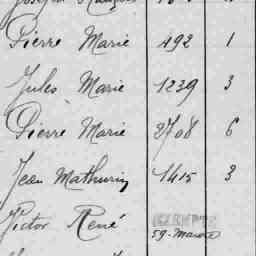 Pierre Marie 492 1
Jules Marie 1239 3
Pierre Marie 2708 6
Jean Mathurin 1415 3
Victor René
59-